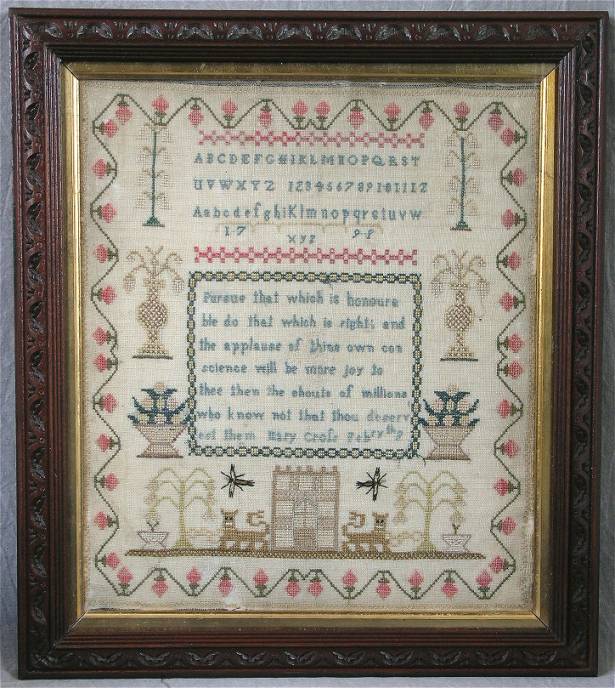 ABCDEFGHIKLMNOPQRST
UVWXYZ 123456789101112
Aabcdefghiklmnopqrstuvw
17 xyz 98
Pursue that which is honoura
ble do that which is right; and
the applause of thine own con
science will be more joy to
thee then the shouts of millions
who know not that thou deserv
est them Mary Crofs Febry th